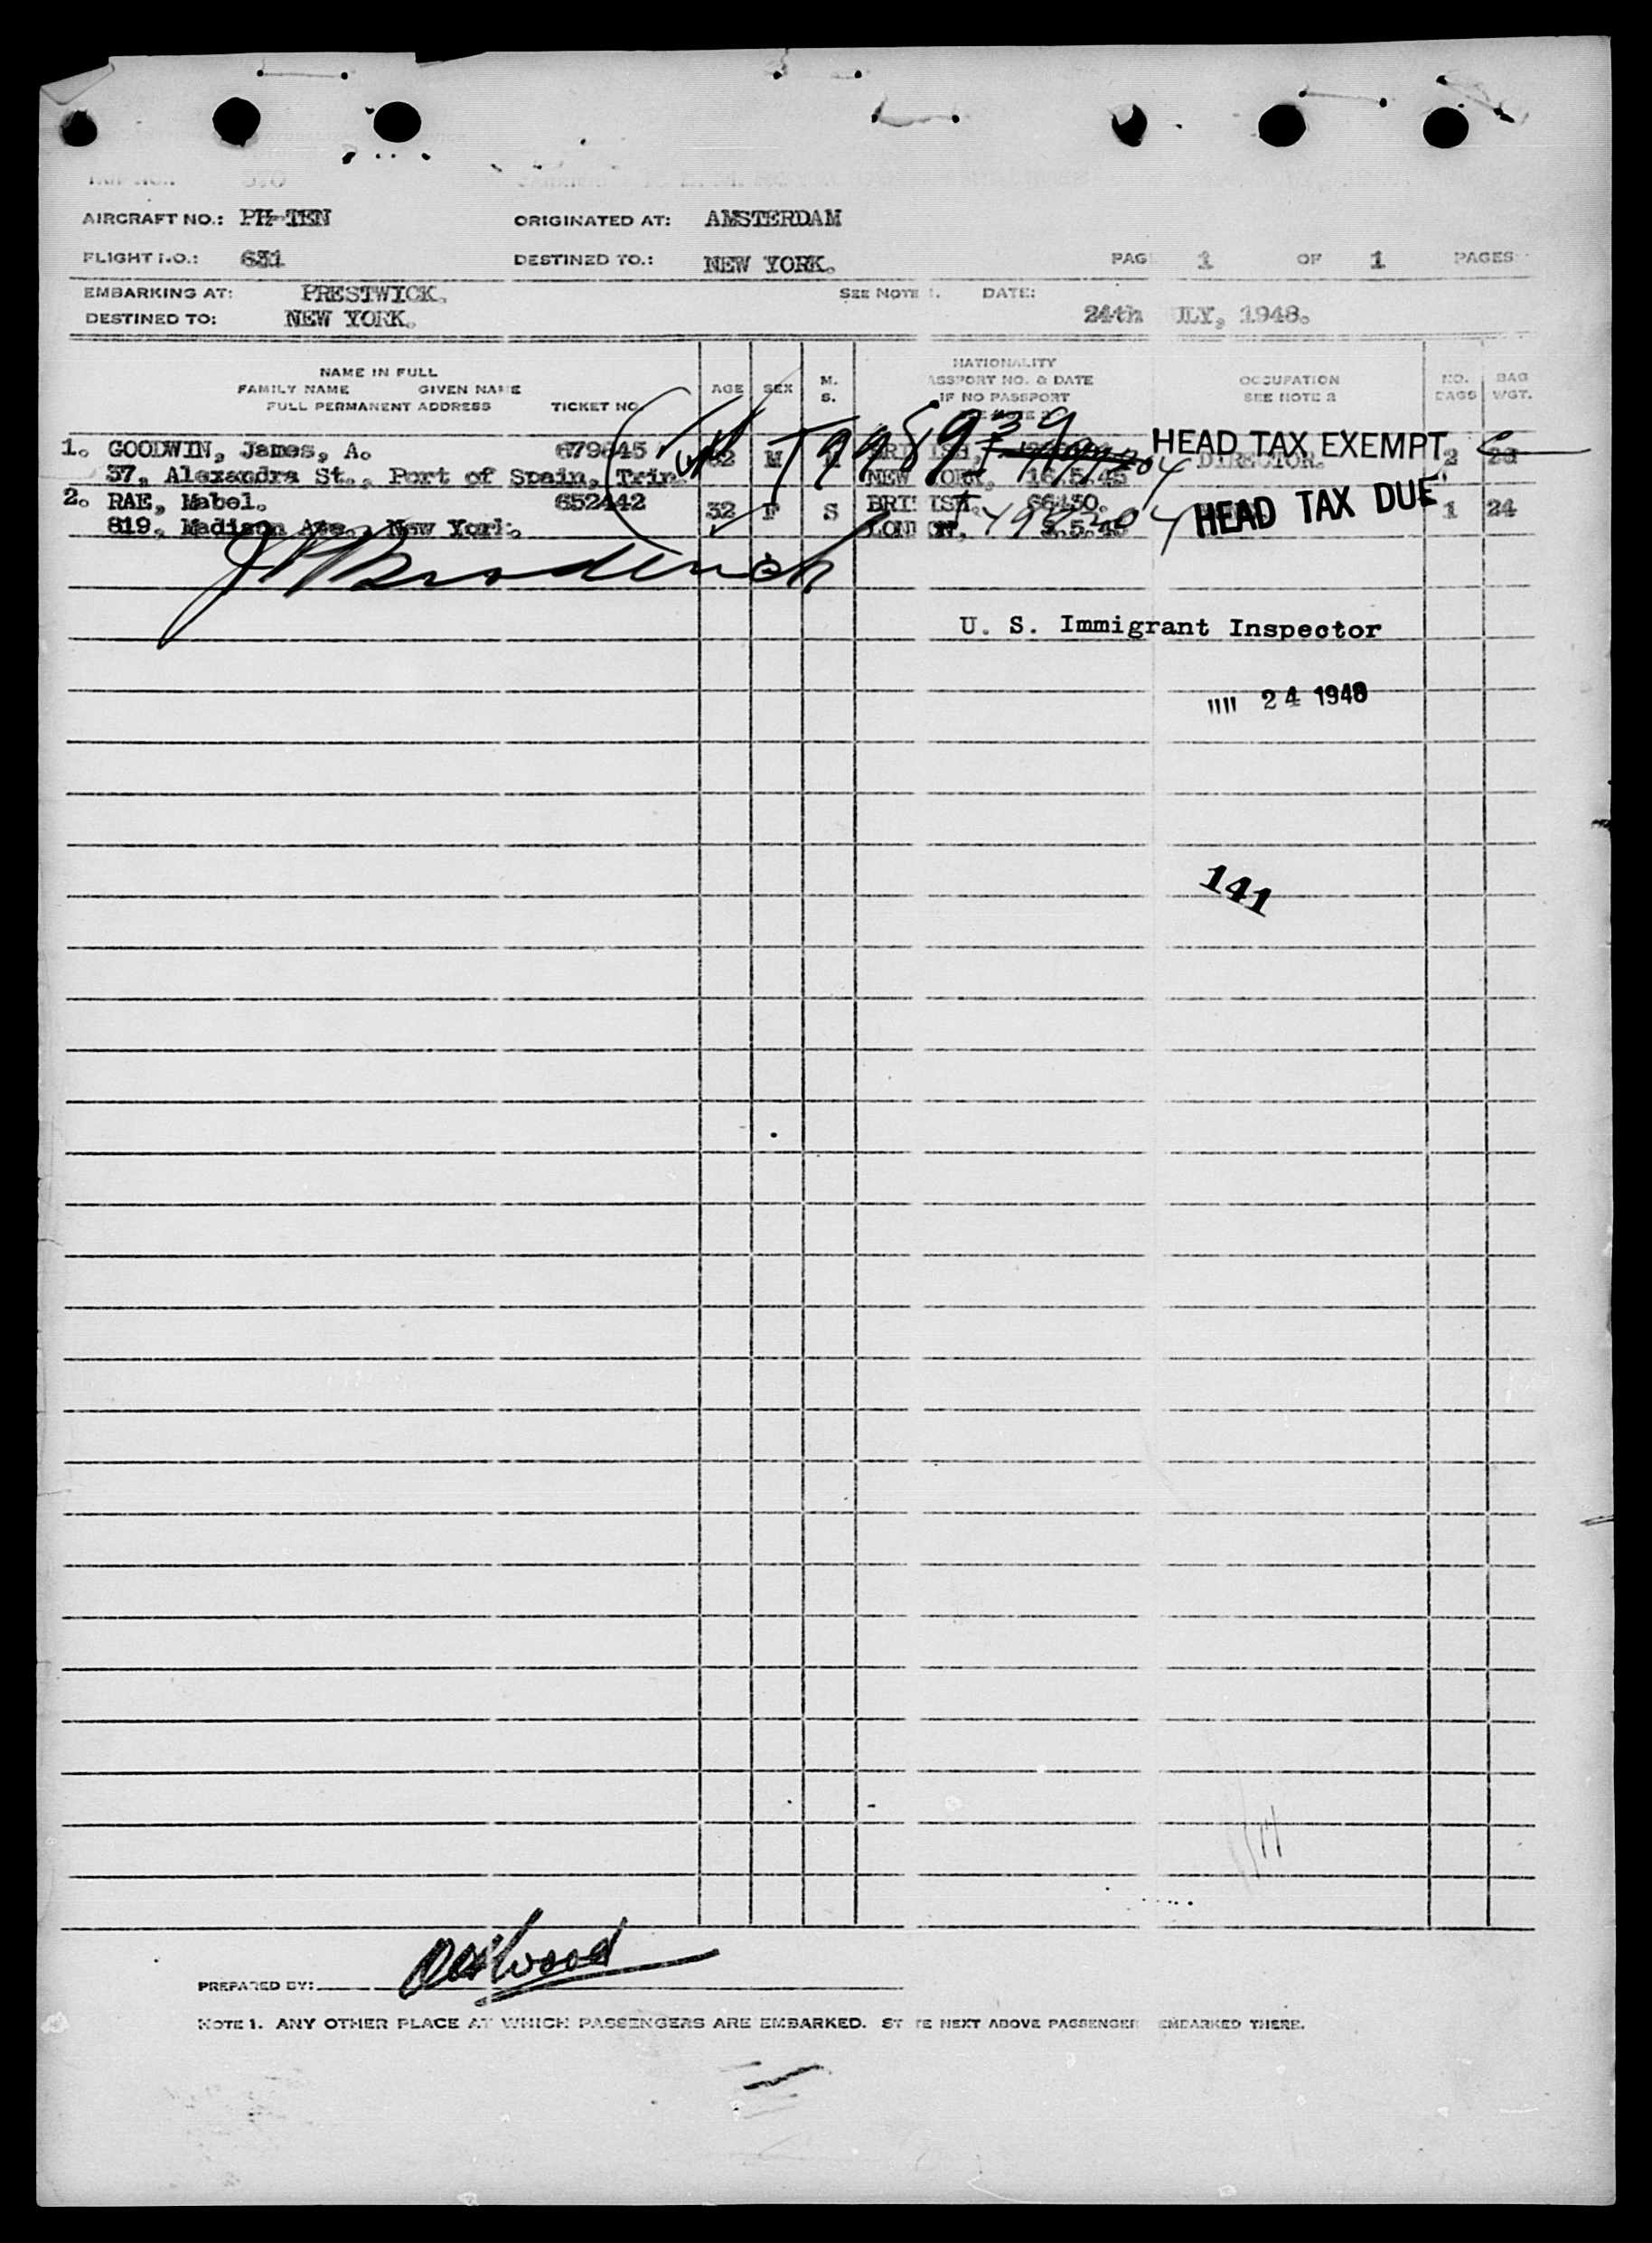 AIRCRAFT NO.: PH-TEN ORIGINATED AT: AMSTERDAM
FLIGHT NO.: 631 DESTINED TO.: NEW YORK. PAGE 1 OF 1 PAGES
EMBARKING AT: PRESTWICK. SEE NOTE 1. DATE:
DESTINED TO: NEW YORK. 24th JULY, 1948.
NAME IN FULL
FAMILY NAME GIVEN NAME
FULL PERMANENT ADDRESS TICKET NO.
AGE SEX M. S.
NATIONALITY
PASSPORT NO. & DATE
IF NO PASSPORT
SEE NOTE 2
OCCUPATION
SEE NOTE 2
NO. BAGS BAG WGT.
T998939
1. GOODWIN, James, A. 679845 M BRITISH, DIRECTOR. 2
HEAD TAX EXEMPT
37, Alexandra St., Port of Spain, Trin. NEW YORK, 16.5.45
2. RAE, Mabel. 652442 32 F S BRITISH. 66130. 1 24
HEAD TAX DUE
819, Madison Ave., New York. LONDON,
U. S. Immigrant Inspector
24 1948
141
PREPARED BY:
NOTE 1. ANY OTHER PLACE AT WHICH PASSENGERS ARE EMBARKED. STATE NEXT ABOVE PASSENGER EMBARKED THERE.